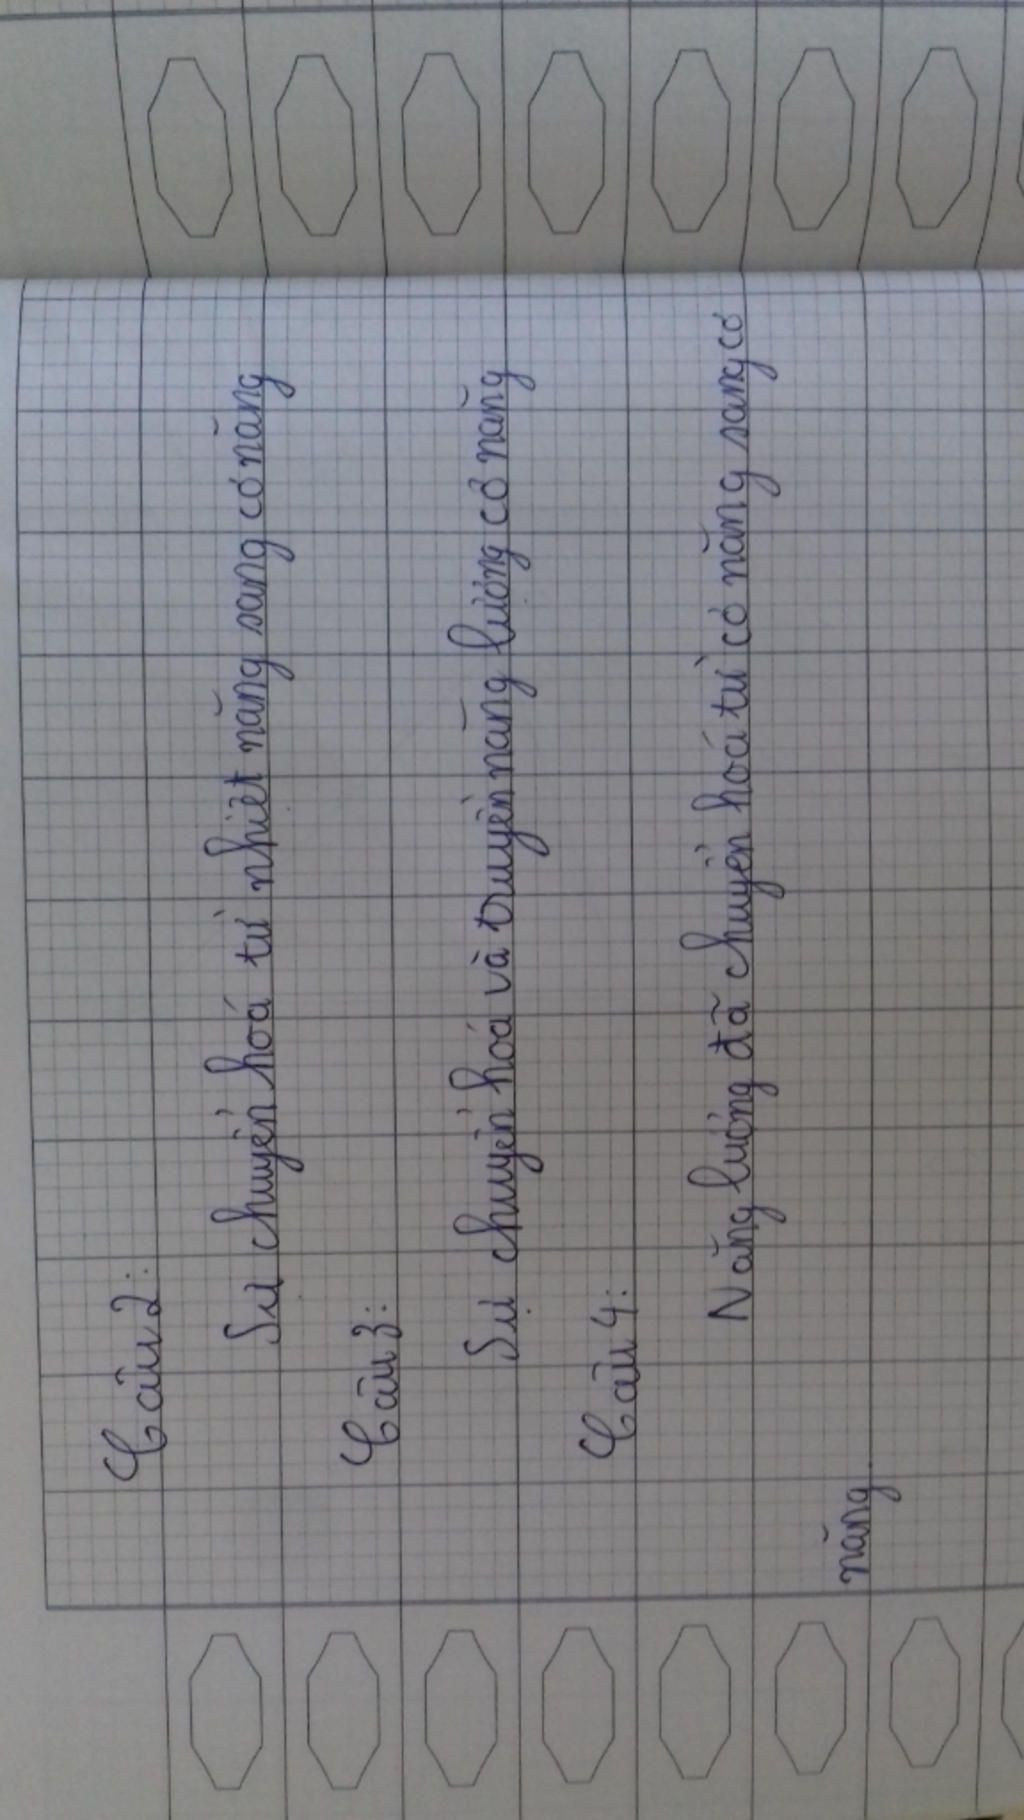 Câu 2:
Sự chuyển hoá từ nhiệt năng sang cơ năng
Câu 3:
Sự chuyển hoá và truyền năng lượng cơ năng
Câu 4:
Năng lượng đã chuyển hoá từ cơ năng sang cơ
năng.